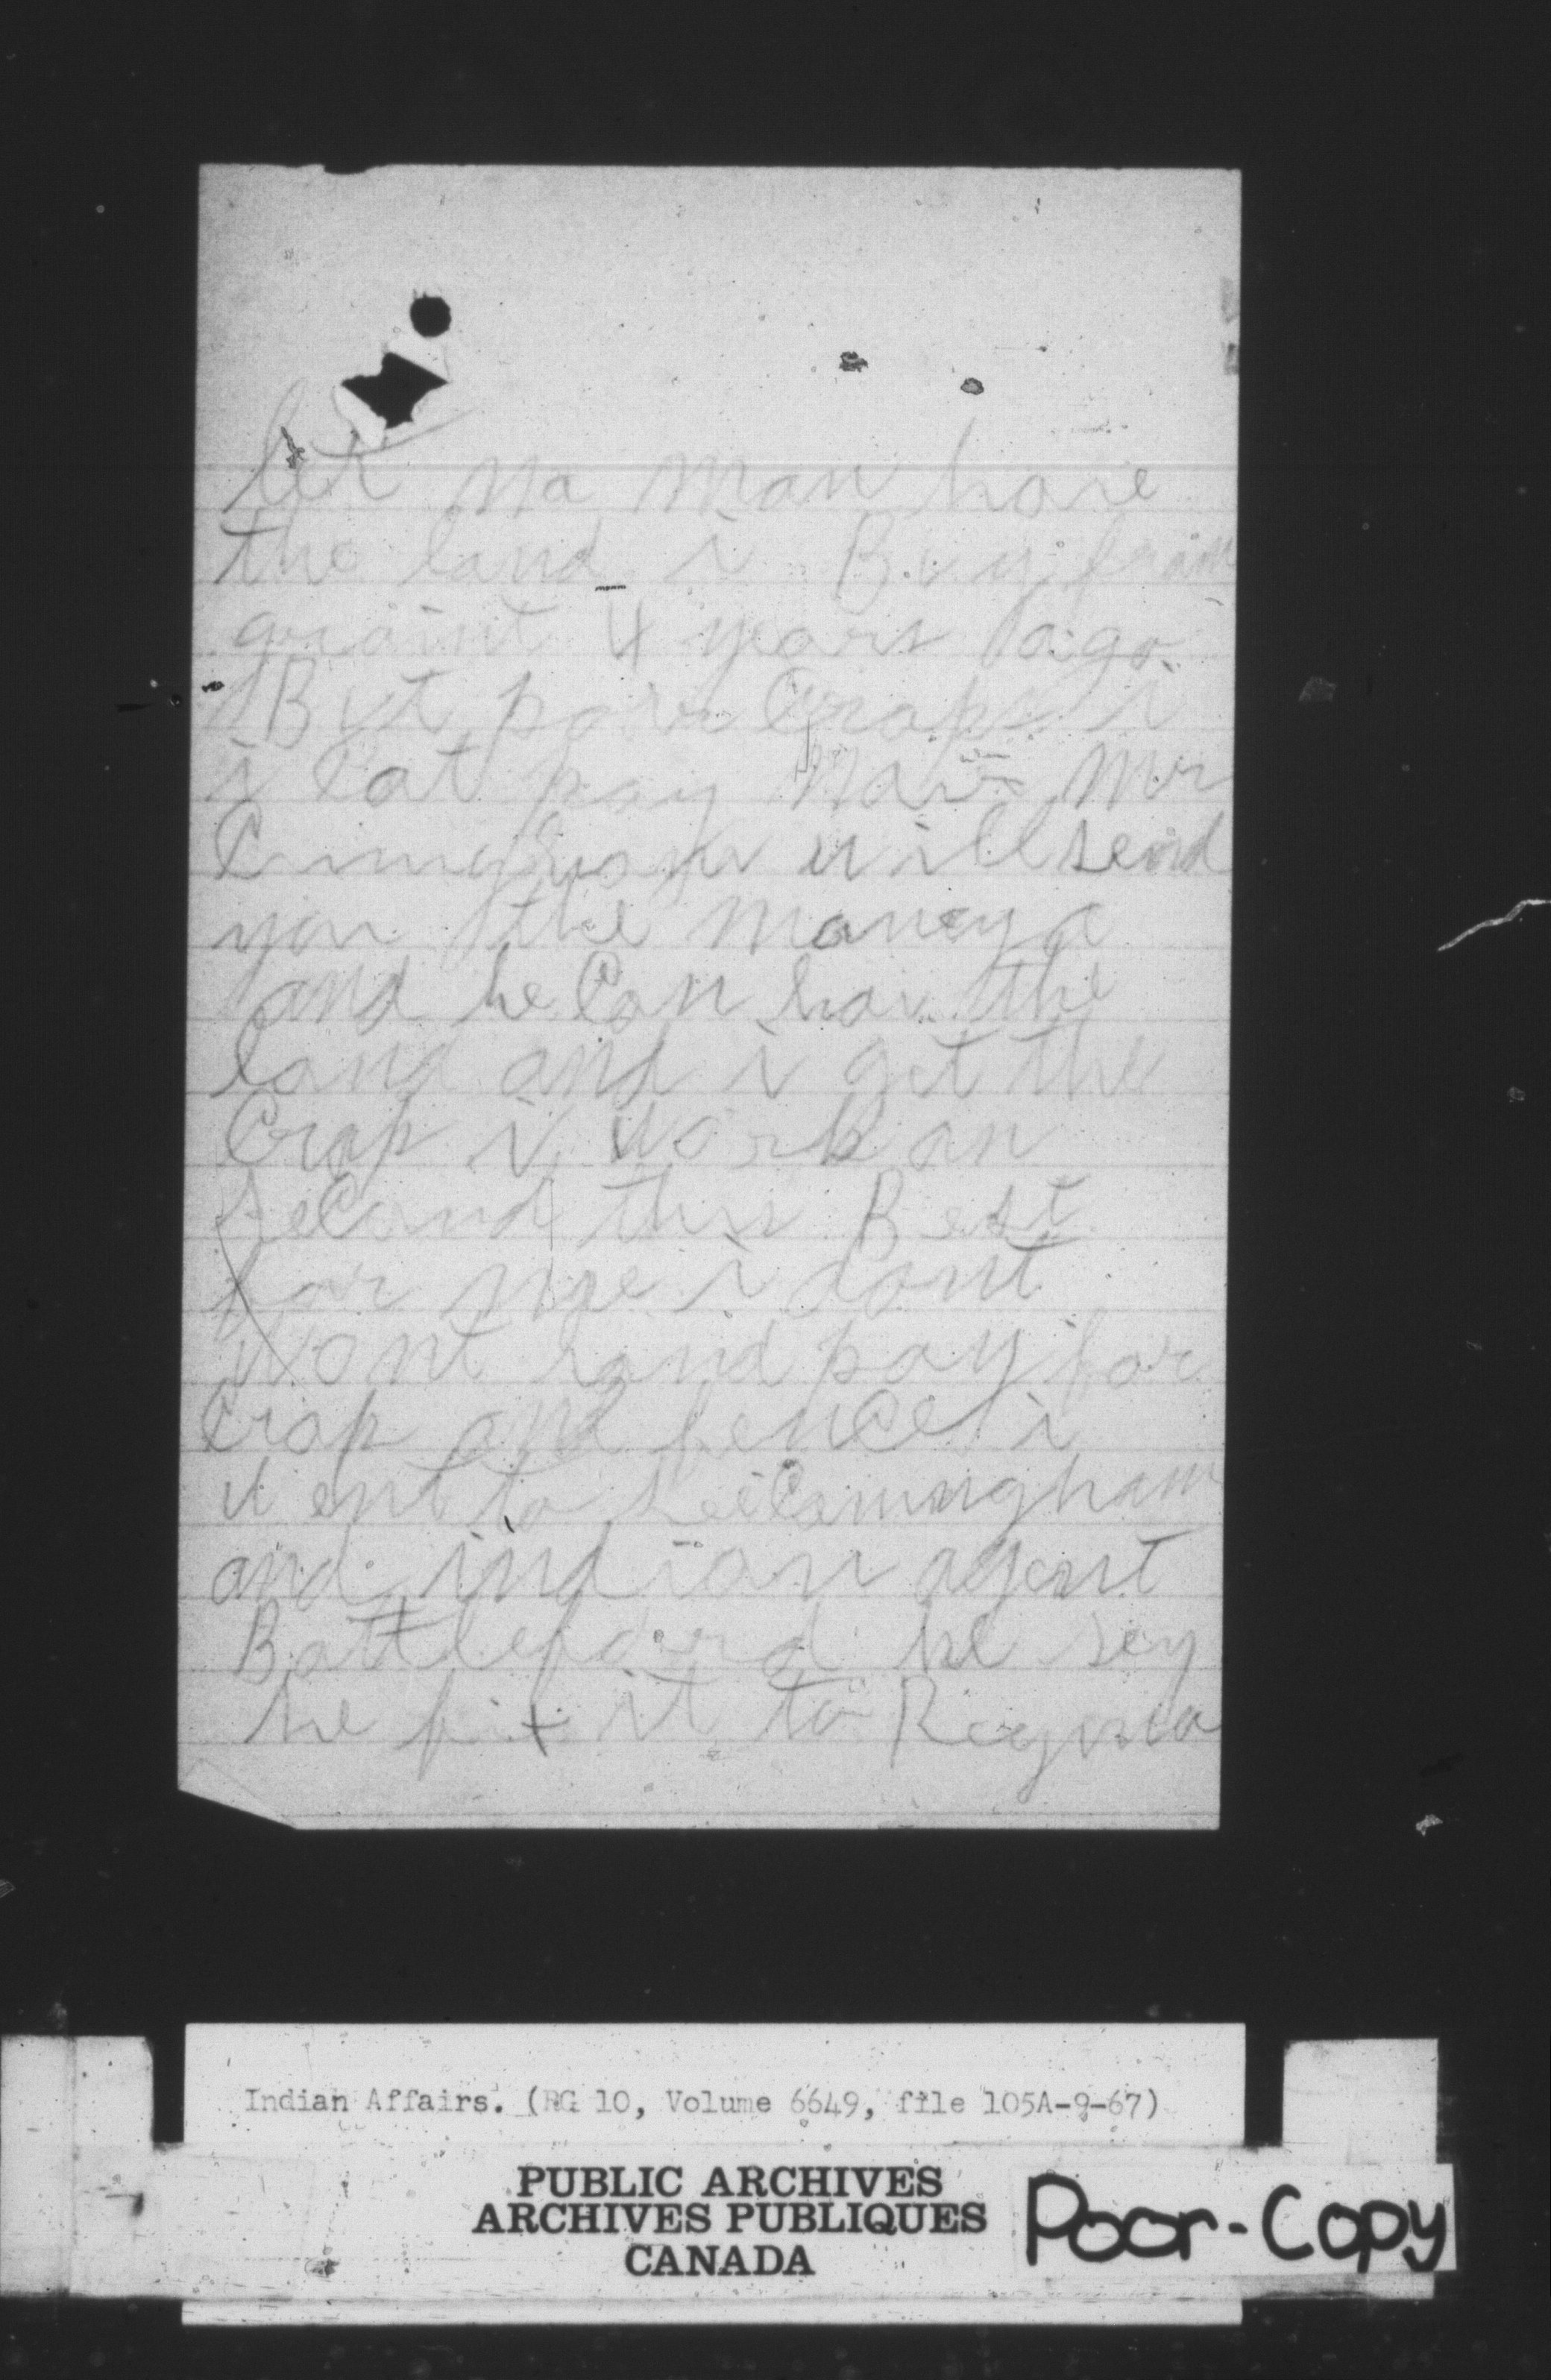 let no man have
the land i Buy from
graint 4 years ago
But poor Crops i
i Cat pay Now Mr
Cuningham will send
you the money
and he Can hav the
land and i get the
Crop i work on
seCond this Best
for me i dont
Wont land pay for
Crop and fenCe i
went to see Cuningham
and indian agent
Battleford he sey
he fix it to Regina
Indian Affairs. (RG 10, Volume 6649, file 105A-9-67)
PUBLIC ARCHIVES
ARCHIVES PUBLIQUES
CANADA
Poor-Copy